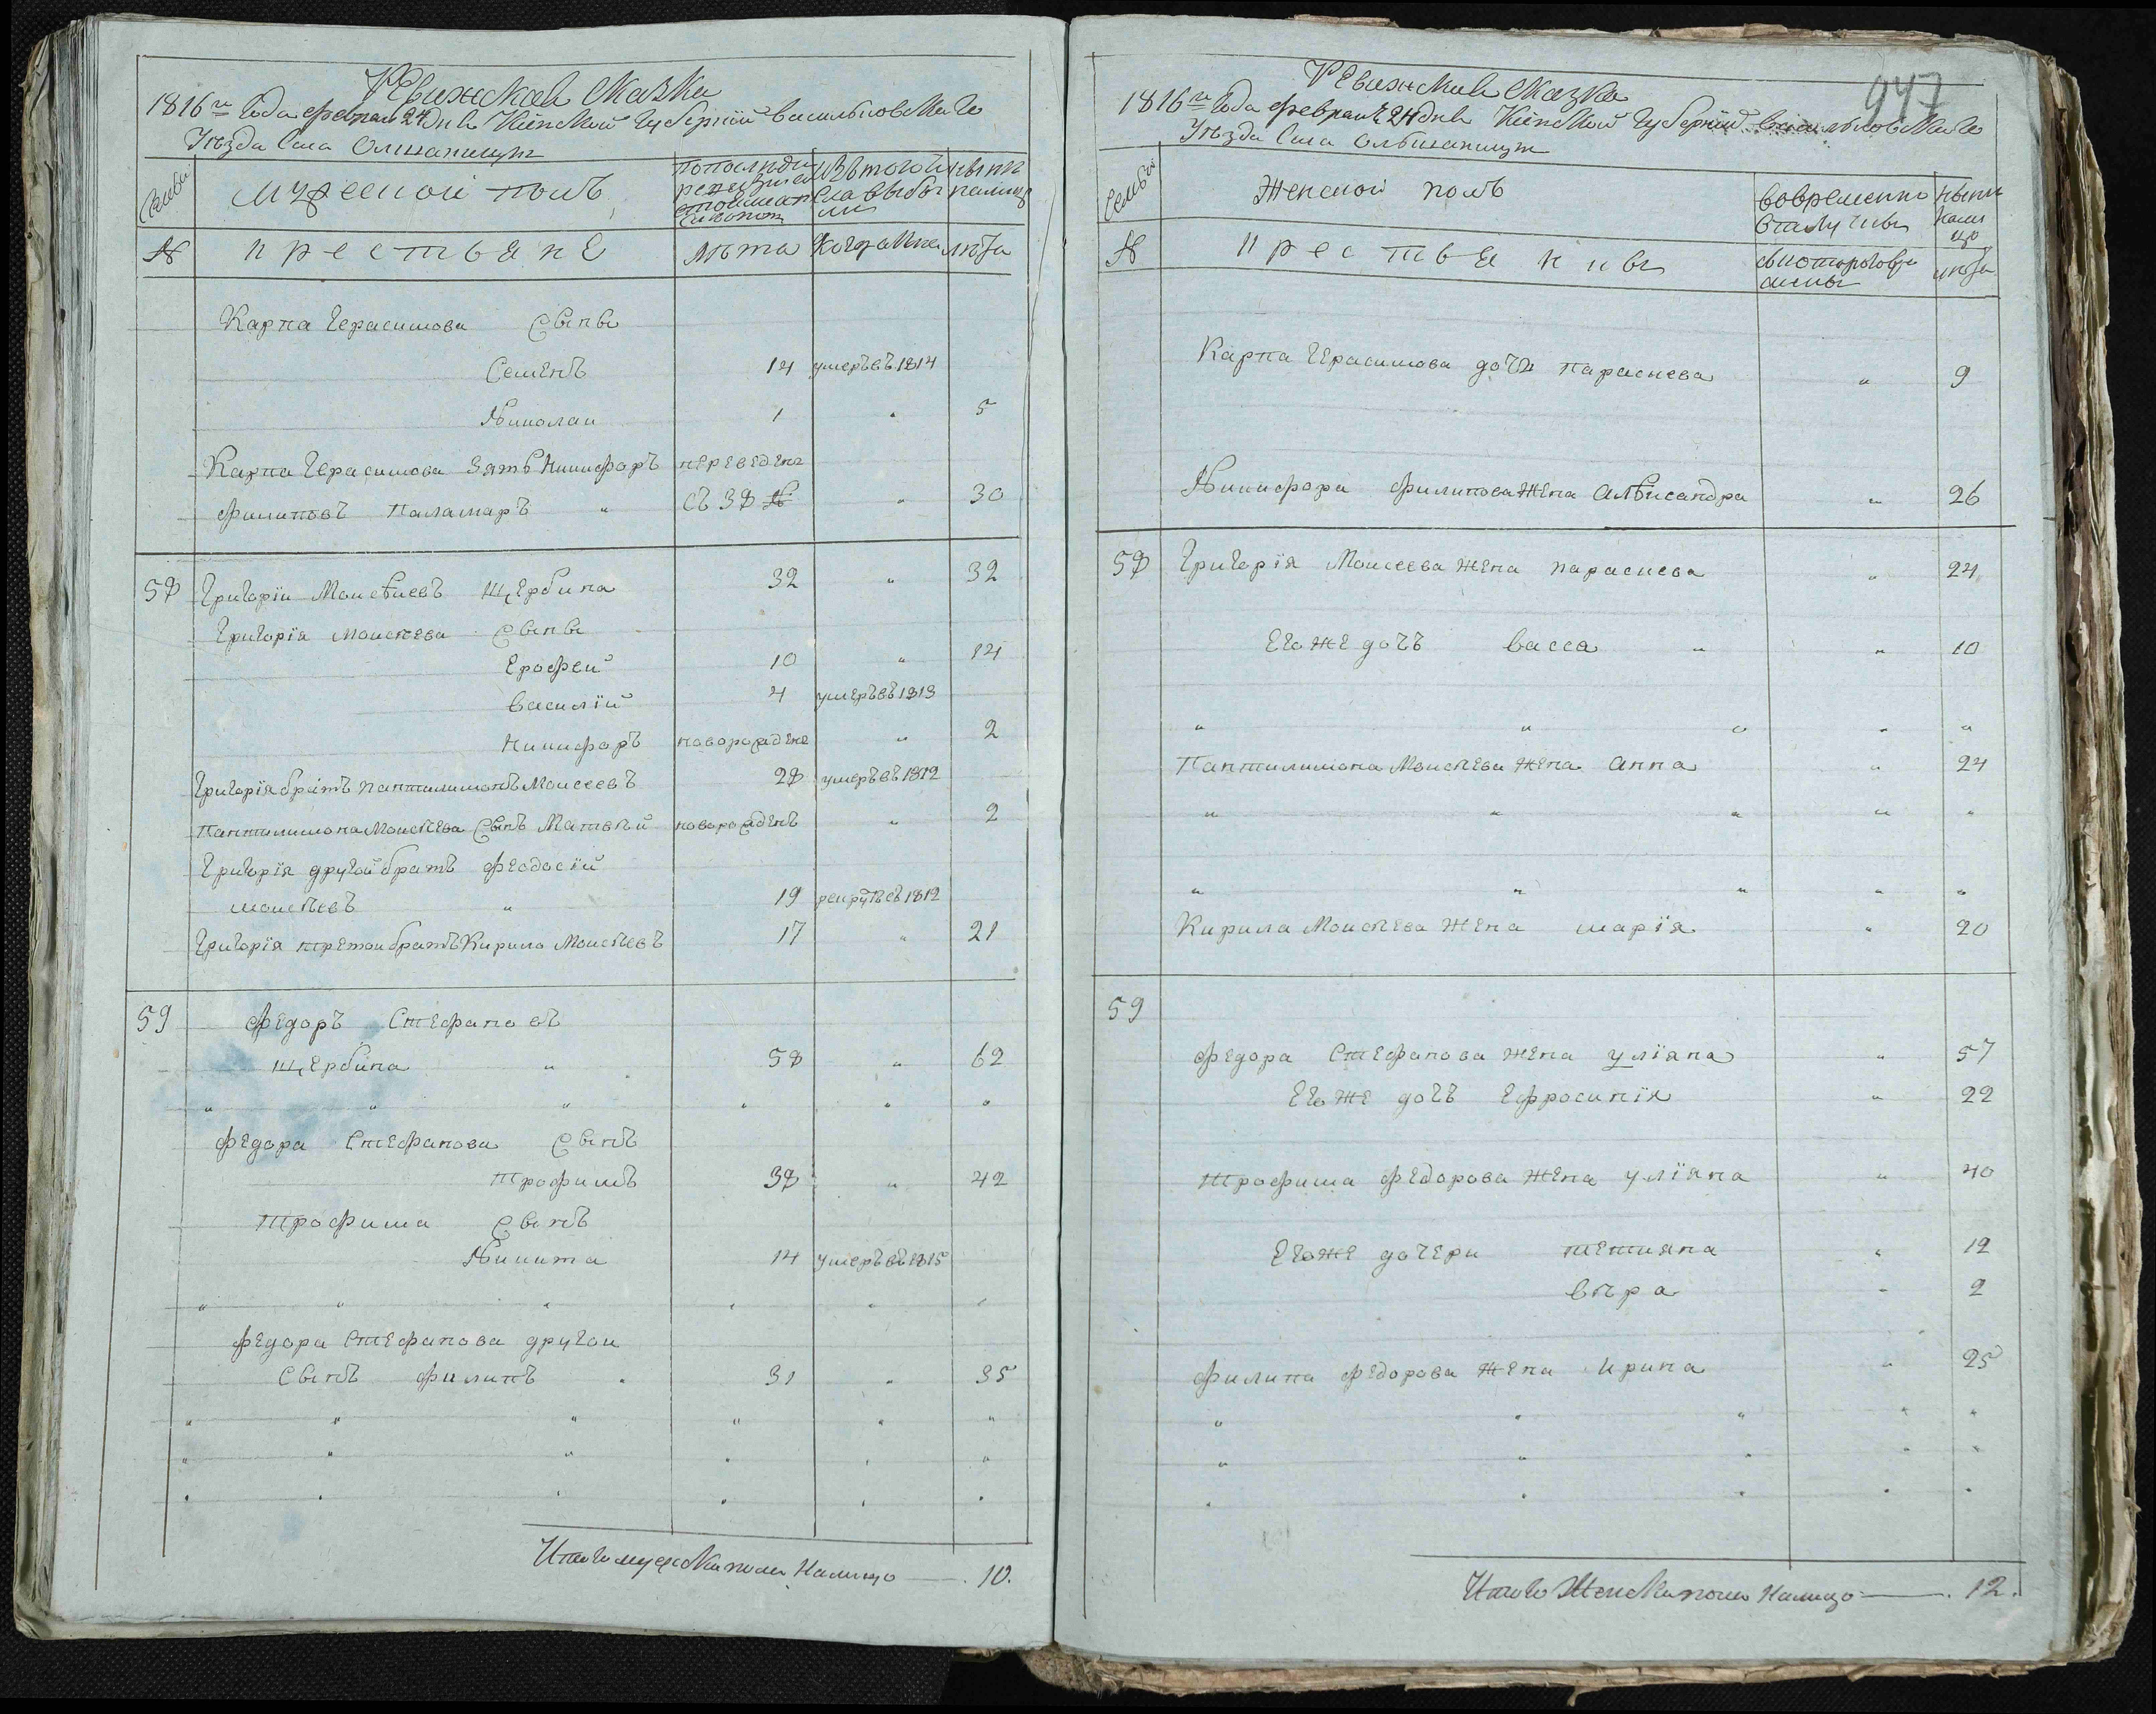 Ревижская Сказка
1816го Года февраля 24 дня Киевской Губернiй васильковскаго
Уезда Села Олшаницы
Семьи
мужескои полъ
по последней ревизiи состояло и после оной
изъ того числа выбыло
ныне на лицо
№
крестьяне
лета
Когда Именно
лета
Карпа Герасимова Сыны
Семенъ 14 умеръ въ 1814
Николаи 1 " 5
Карпа Герасимова зять Никифоръ переведенъ
Филиповъ Паламаръ " съ 38 № " 30
58 Григорiи Моисѣиевъ Щербина 32 " 32
Григорiя Моисѣева Сыны
Ерофей 10 " 14
василiй 4 умеръ въ 1813
Никифоръ новорожденъ " 2
Григорiя братъ Пантилимонъ Моисеевъ 28 умеръ въ 1812
Пантилимона Моисѣева Сынъ Матвѣй новорожденъ " 2
Григорiя другой братъ Феодосiй
моисѣевъ " 19 рекрутъ съ 1812
Григорiя третои братъ Кирило Моисѣевъ 17 " 21
59 Федоръ Стефановъ
щербина " 58 " 62
" " " " " "
Федора Стефанова Сынъ
трофимъ 38 " 42
трофима Сынъ
Никита 14 умеръ въ 1815
" " " " " "
Федора Стефанова другои
Сынъ Филипъ " 31 " 35
" " " " " "
" " " " " "
" " " " " "
Итого мужеска пола Налицо — 10.
947
Ревижская Сказка
1816го Года февраля 24 дня Киевской Губернiй васильковскаго
Уезда Села Ольшаницы
Семьи
Женской полъ
вовременно отлучке
ныне на лицо
№
крестьянки
лета
Карпа Герасимова дочь параскева " 9
Никифора Филипова жена Александра " 26
58 Григорiя Моисеева жена параскева " 24
Его же дочъ васса " " 10
" " " " "
Пантилимона Моисѣева жена Анна " 24
" " " " "
" " " " "
Кирила Моисѣева жена марiя " 20
59
Федора Стефанова жена улiяна " 57
Его же дочъ Ефросинiя " 22
трофима Федорова жена улiяна " 40
Его же дочери тетияна " 12
вѣра " 2
Филипа Федорова жена Ирина " 25
" " " " "
" " " " "
" " " " "
Итого Женска пола Налицо — 12.